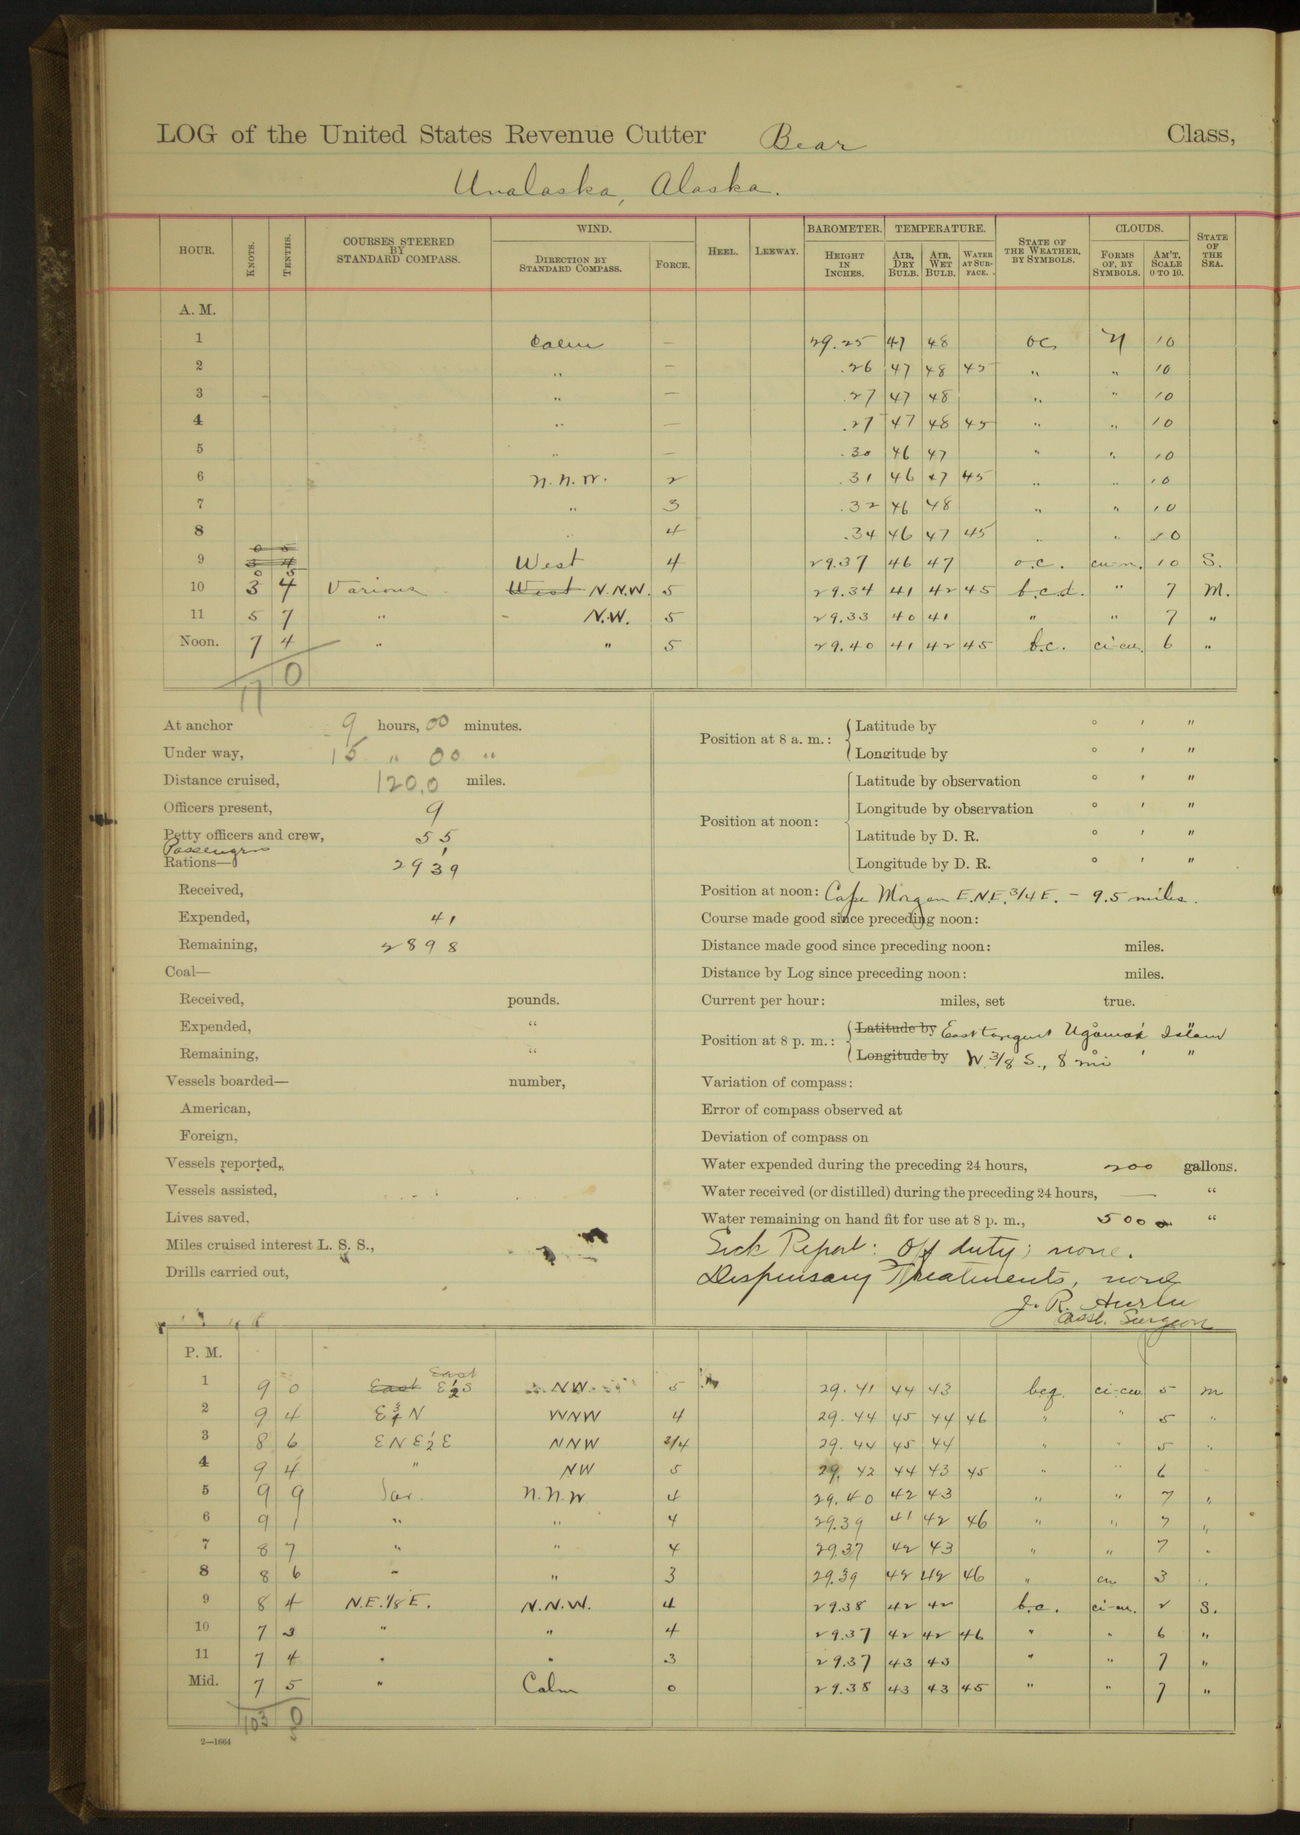 LOG of the United States Revenue Cutter Bear Class,
Unalaska, Alaska.
HOUR. KNOTS. TENTHS. COURSES STEERED BY STANDARD COMPASS. WIND. DIRECTION BY STANDARD COMPASS. FORCE. HEEL. LEEWAY. BAROMETER. HEIGHT IN INCHES. TEMPERATURE. AIR, DRY BULB. AIR, WET BULB. WATER AT SURFACE. STATE OF THE WEATHER, BY SYMBOLS. CLOUDS. FORMS OF, BY SYMBOLS. AM'T, SCALE 0 TO 10. STATE OF THE SEA.
A. M.
1 Calm — 29.25 47 48 oc N 10
2 " — .26 47 48 45 " " 10
3 " — .27 47 48 " " 10
4 " — .27 47 48 45 " " 10
5 " — .30 46 47 " " 10
6 N.N.W. 2 .31 46 47 45 " " 10
7 " 3 .32 46 48 " " 10
8 " 4 .34 46 47 45 " " 10
9 0 5 West 4 29.37 46 47 o.c. cu-n. 10 S.
10 3 4 Various West N.N.W. 5 29.34 41 42 45 b.c.d. " 7 M.
11 5 7 " N.W. 5 29.33 40 41 " " 7 "
Noon. 7 4 " " 5 29.40 41 42 45 b.c. ci-cu. 6 "
17 0
At anchor 9 hours, 00 minutes.
Under way, 15 " 00 "
Distance cruised, 120.0 miles.
Officers present, 9
Petty officers and crew, 55
Passengers 1
Rations— 2939
Received,
Expended, 41
Remaining, 2898
Coal—
Received, pounds.
Expended, "
Remaining, "
Vessels boarded— number,
American,
Foreign,
Vessels reported,
Vessels assisted,
Lives saved,
Miles cruised interest L. S. S.,
Drills carried out,
Position at 8 a. m.: Latitude by ° ' "
Longitude by ° ' "
Position at noon: Latitude by observation ° ' "
Longitude by observation ° ' "
Latitude by D. R. ° ' "
Longitude by D. R. ° ' "
Position at noon: Cape Morgan E.N.E. 3/4 E. - 9.5 miles.
Course made good since preceding noon:
Distance made good since preceding noon: miles.
Distance by Log since preceding noon: miles.
Current per hour: miles, set true.
Position at 8 p. m.: Latitude by East tangent Ugamak Island
Longitude by W. 3/8 S., 8 mi ° ' "
Variation of compass:
Error of compass observed at
Deviation of compass on
Water expended during the preceding 24 hours, 200 gallons.
Water received (or distilled) during the preceding 24 hours, — "
Water remaining on hand fit for use at 8 p. m., 5000 "
Sick Report: Off duty; none.
Dispensary Treatments, none
J. R. Hurley
Asst. Surgeon
P. M.
1 9 0 East East E½S NW 5 29.41 44 43 bcq ci-cu 5 m
2 9 4 E¾N WNW 4 29.44 45 44 46 " " 5 "
3 8 6 ENE½E NNW 2/4 29.44 45 44 " " 5 "
4 9 4 " NW 5 29.42 44 43 45 " " 6 "
5 9 9 Var. N.N.W 4 29.40 42 43 " " 7 "
6 9 1 " " 4 29.39 41 42 46 " " 7 "
7 8 7 " " 4 29.37 42 43 " " 7 "
8 8 6 " " 3 29.39 42 42 46 " cu 3 "
9 8 4 N.E. 1/8 E. N.N.W. 4 29.38 42 42 b.c. ci-cu. 2 S.
10 7 3 " " 4 29.37 42 42 46 " " 6 "
11 7 4 " " 3 29.37 43 43 " " 7 "
Mid. 7 5 " Calm 0 29.38 43 43 45 " " 7 "
103 0
2—1664